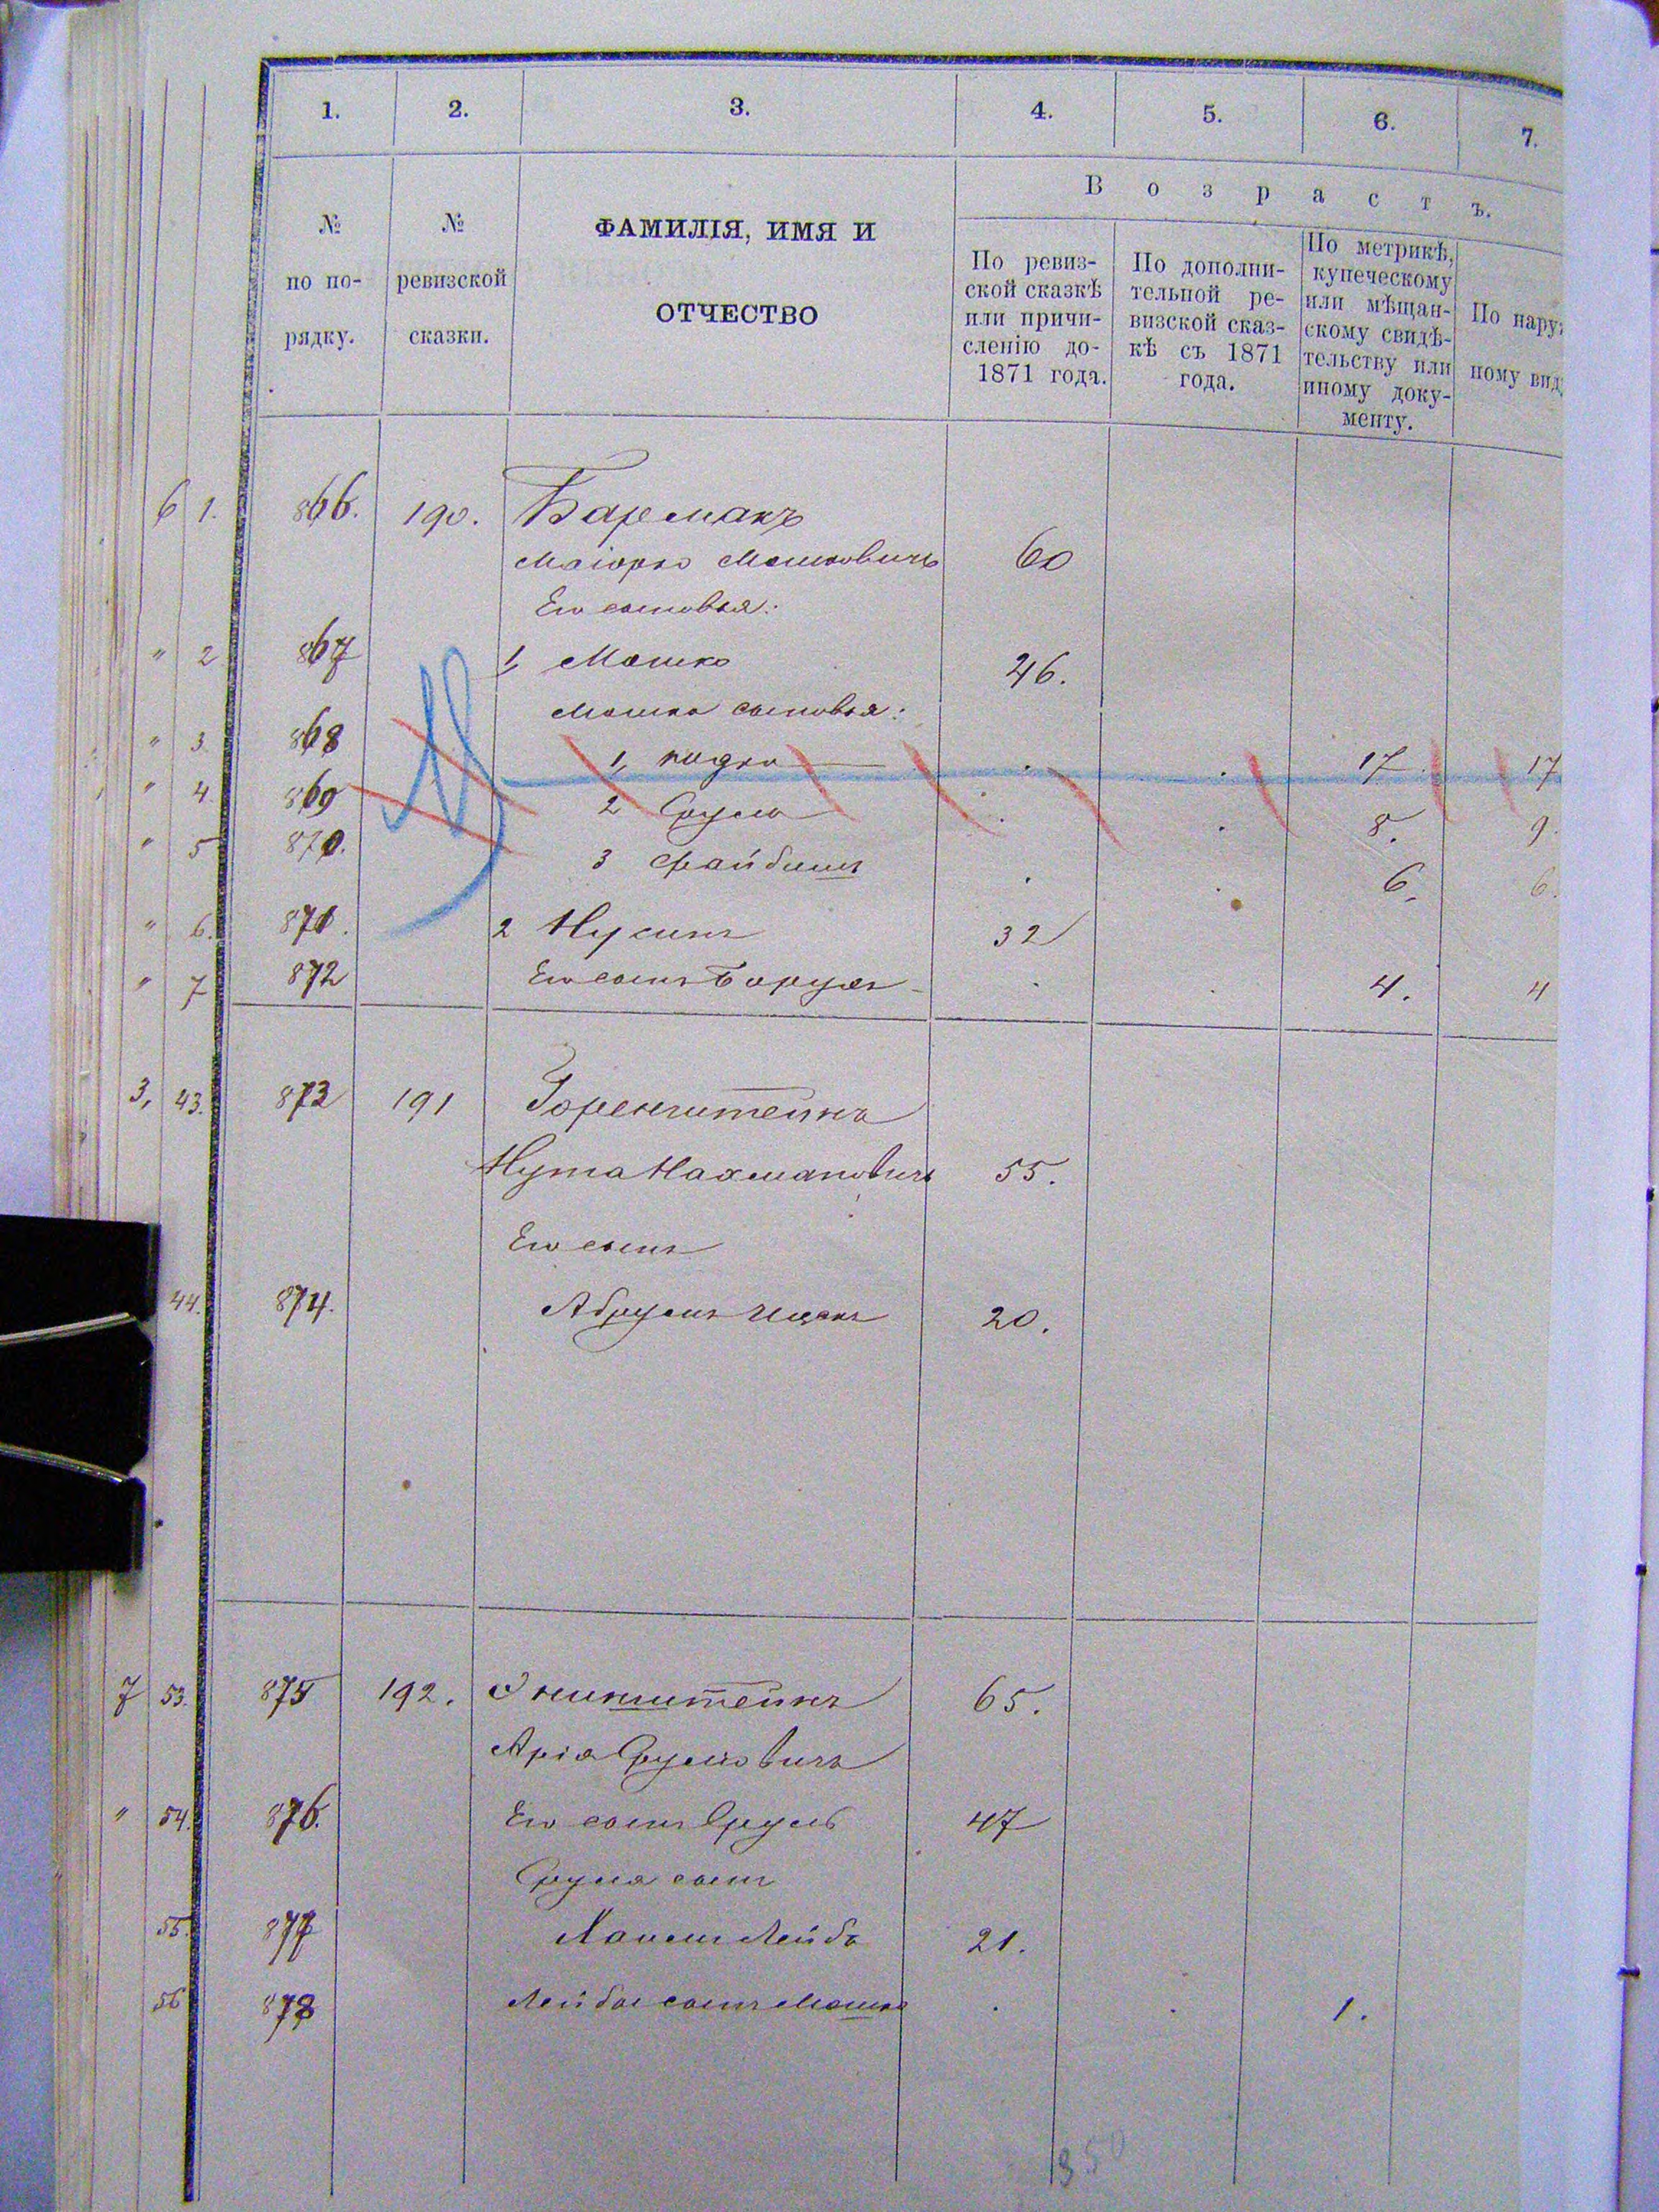 1. 2. 3. 4. 5. 6. 7.
№ по по-рядку.
№ ревизской сказки.
ФАМИЛІЯ, ИМЯ И
ОТЧЕСТВО
В о з р а с т ъ.
По ревиз-
ской сказкѣ
или причи-
сленію до-
1871 года.
По дополни-
тельной ре-
визской сказ-
кѣ съ 1871
года.
По метрикѣ,
купеческому
или мѣщан-
скому свидѣ-
тельству или
иному доку-
менту.
По нару
ному вид
6 1. 866. 190. Бармакъ
Маіорко Мошковичъ 60
Его сыновья:
" 2 867 1, Мошко 46.
Мошка сыновья:
" 3. 868 1, 17 17
" 4. 869 2 Сруль 8. 9.
" 5 870. 3 Файбишъ 6. 6.
" 6. 871. 2 Нусинъ 32
" 7 872 Его сынъ Борухъ 4. 4
3, 43. 873 191 Горенштейнъ
Нута Нахмановичъ 55.
Его сынъ
44. 874. Абрумъ Ицекъ 20.
7 53. 875 192. 65.
Арія Срулевичъ
" 54. 876. Его сынъ Сруль 47
Сруля сынъ
55. 877 Лейба 21.
56 878 Лейбы сынъ Мошко 1.
350